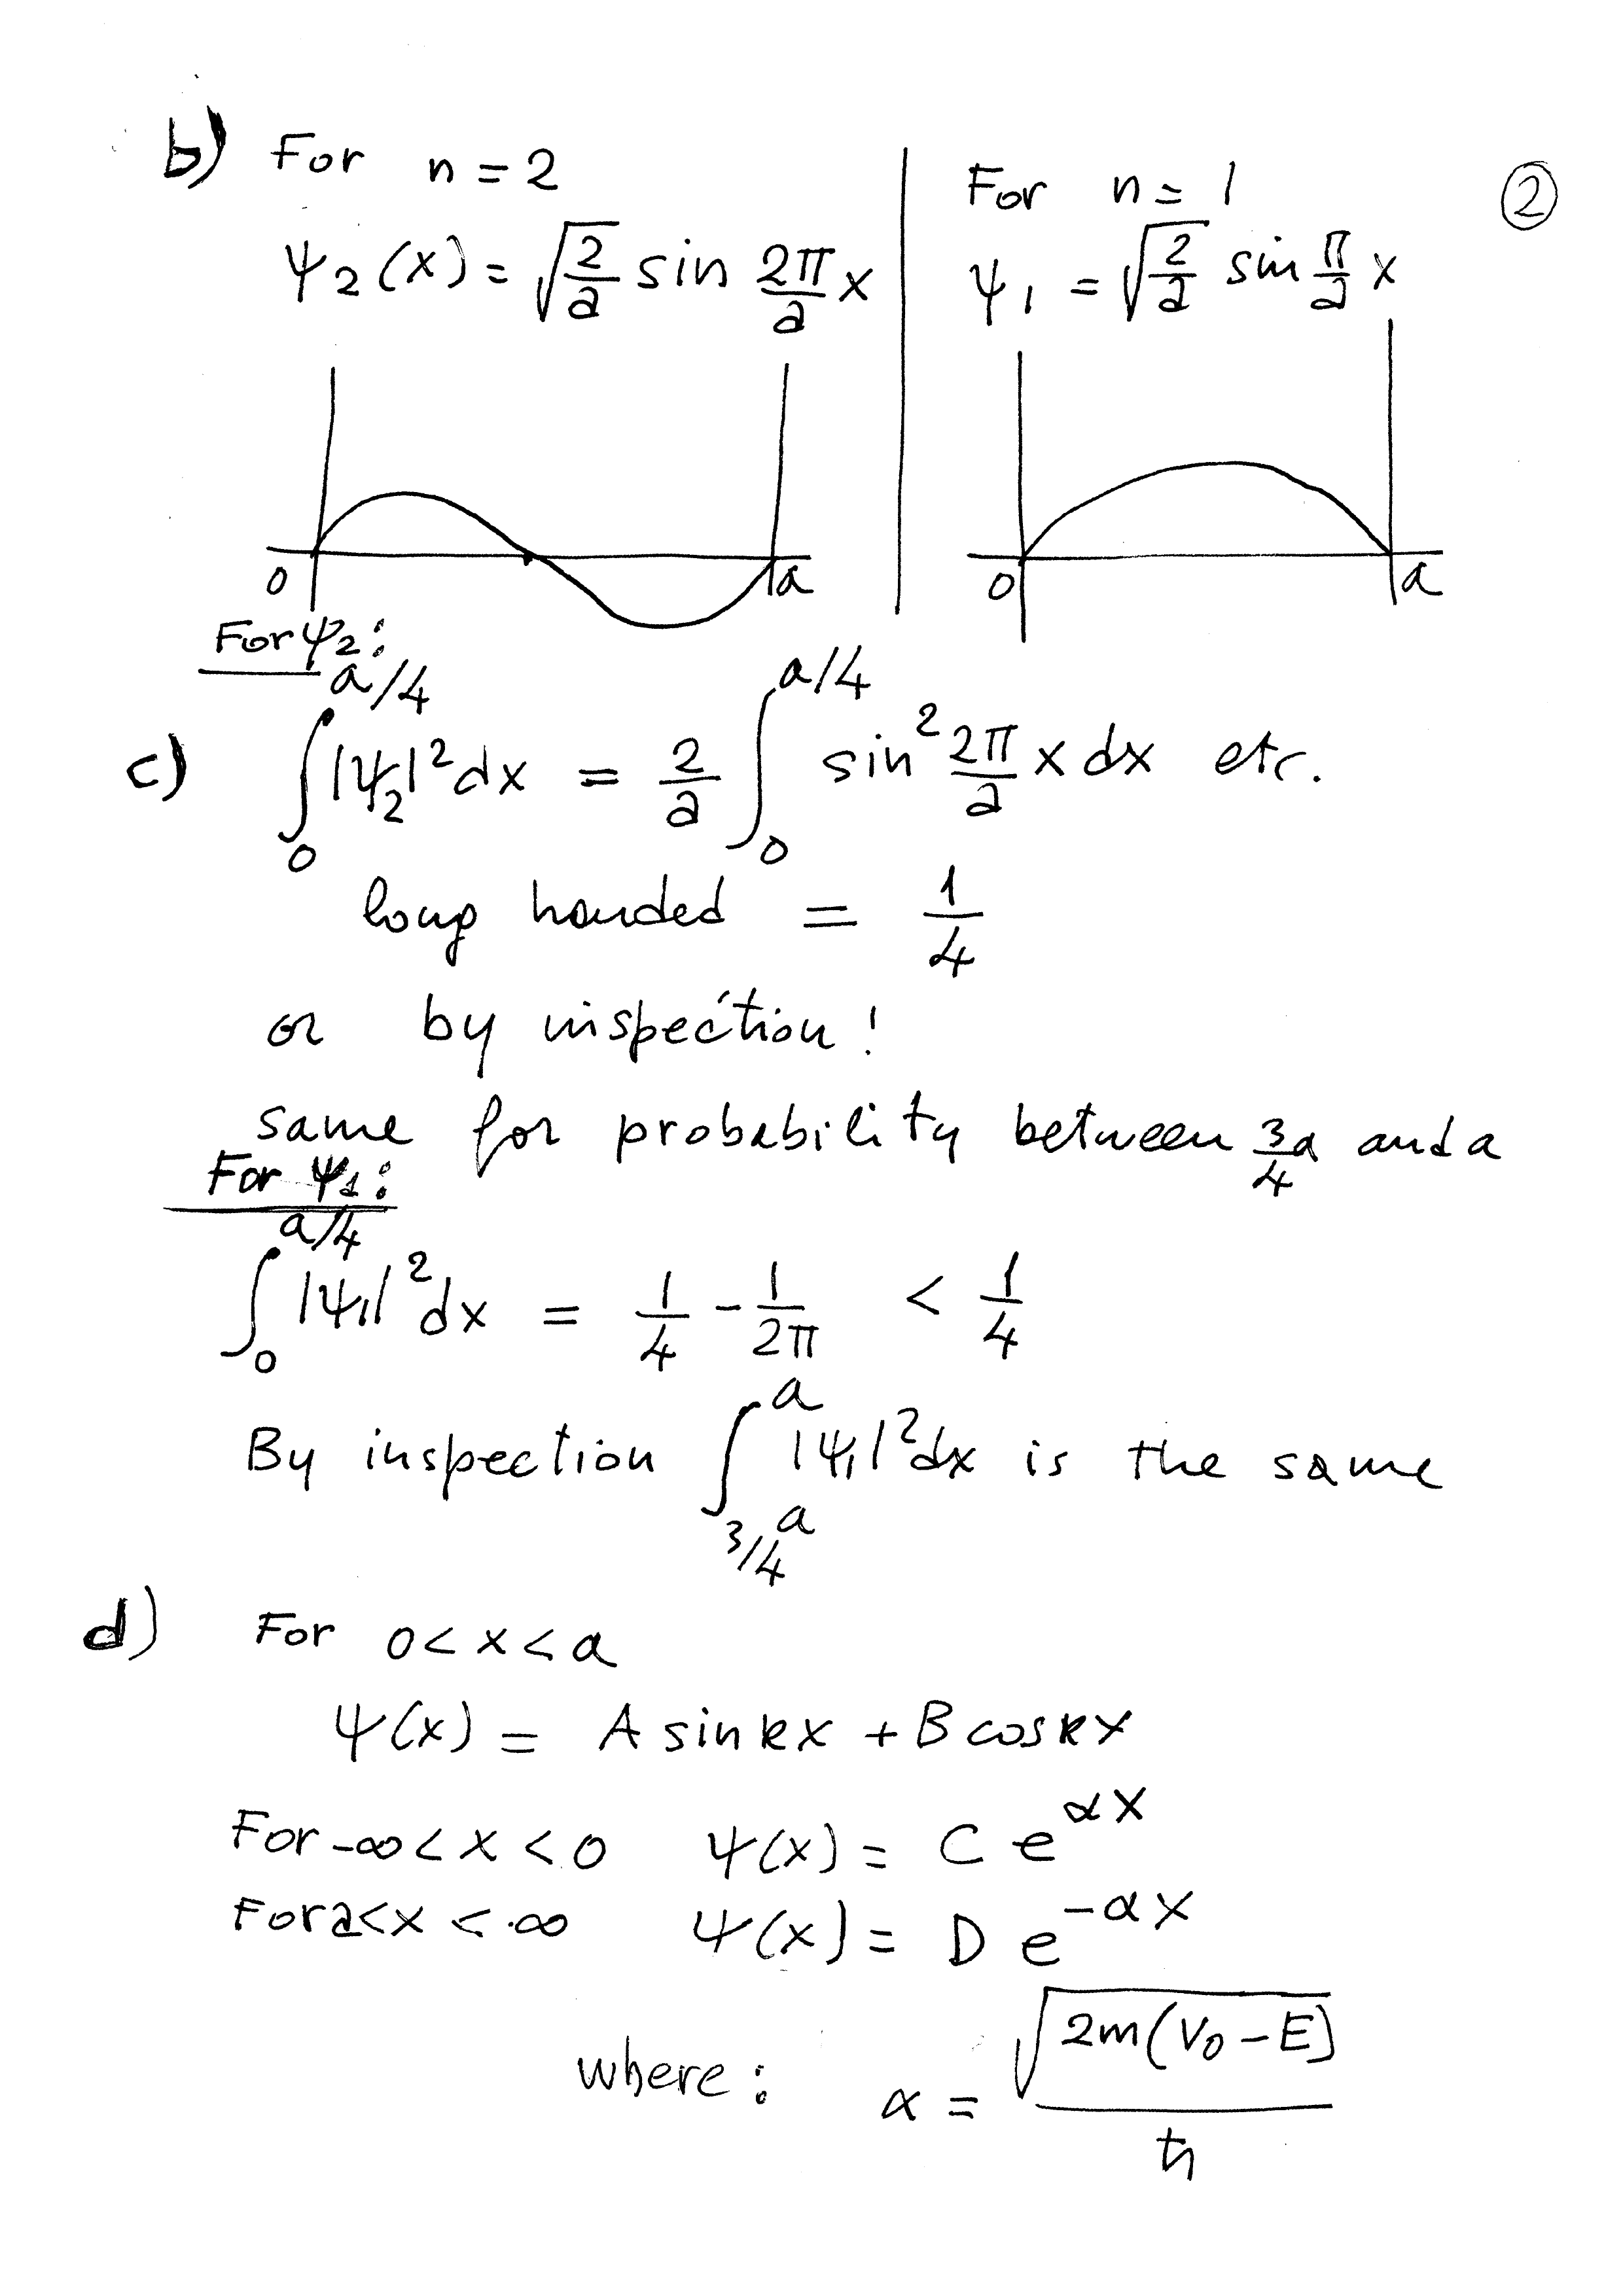 b) For n = 2
ψ₂(x) = √(2/a) sin 2π/a x
0 a
For n = 1
ψ₁ = √(2/a) sin π/a x
0 a
②
For ψ₂:
c) ∫₀^(a/4) |ψ₂|² dx = 2/a ∫₀^(a/4) sin² 2π/a x dx etc.
long handed = 1/4
or by inspection!
same for probability between 3/4 a and a
For ψ₁:
∫₀^(a/4) |ψ₁|² dx = 1/4 - 1/2π < 1/4
By inspection ∫_(3/4 a)^a |ψ₁|² dx is the same
d) For 0 < x < a
ψ(x) = A sin kx + B cos kx
For -∞ < x < 0 ψ(x) = C e^(αx)
For a < x < ∞ ψ(x) = D e^(-αx)
where: α = √(2m(V₀ - E)) / ħ